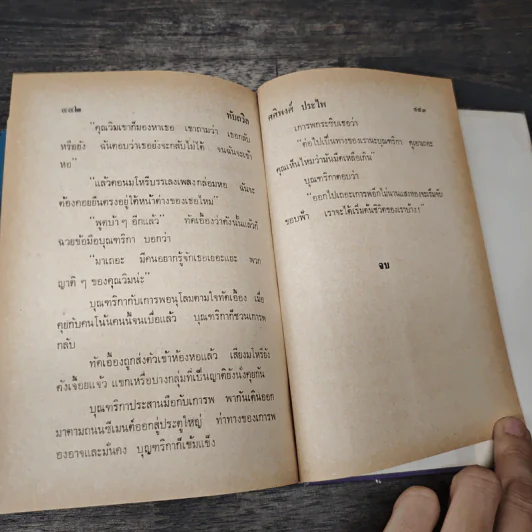 ๔๔๒
ทับถวิล
"คุณวิมเขาก็มองหาเธอ เขาถามว่า เธอกลับ
หรือยัง ฉันตอบว่าเธอยังจะกลับไม่ได้ จนฉันจะเข้า
หอ"
"แล้วตอนมโหรีบรรเลงเพลงกล่อมหอ ฉันจะ
ต้องคอยยืนตรงอยู่ใต้หน้าต่างของเธอไหม"
"พูดบ้า ๆ อีกแล้ว" ทัดเอื้องว่าดังนั้นแล้วก็
ฉวยข้อมือบุณฑริกา บอกว่า
"มาเถอะ มีคนอยากรู้จักเธอเยอะแยะ พวก
ญาติ ๆ ของคุณวิมน่ะ"
บุณฑริกากับเการพอนุโลมตามใจทัดเอื้อง เมื่อ
คุยกับคนโน้นคนนี้จนเบื่อแล้ว บุณฑริกาก็ชวนเการพ
กลับ
ทัดเอื้องถูกส่งตัวเข้าห้องหอแล้ว เสียงมโหรียัง
ดังเจื้อยแจ้ว แขกเหรื่อบางกลุ่มที่เป็นญาติยังนั่งคุยกัน
บุณฑริกาประสานมือกับเการพ พากันเดินออก
มาตามถนนซีเมนต์ออกสู่ประตูใหญ่ ท่าทางของเการพ
องอาจและมั่นคง บุญฑริกาก็เข้มแข็ง
ศศิพงศ์ ประไพ
๔๔๓
เการพกระซิบเธอว่า
"ต่อไปเป็นทางของเรานะบุณฑริกา ดูเอาเถอะ
คุณเห็นไหมว่ามันมืดเหลือเกิน"
บุณฑริกาตอบว่า
"ออกไปเถอะเการพอีกไม่นานแสงทองจะเริ่มจับ
ขอบฟ้า เราจะได้เริ่มต้นชีวิตของเราบ้าง!"
จบ